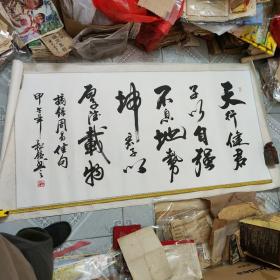 天行健君
子以自强
不息地势
坤君子以
厚德载物
摘录周易佳句
甲午年